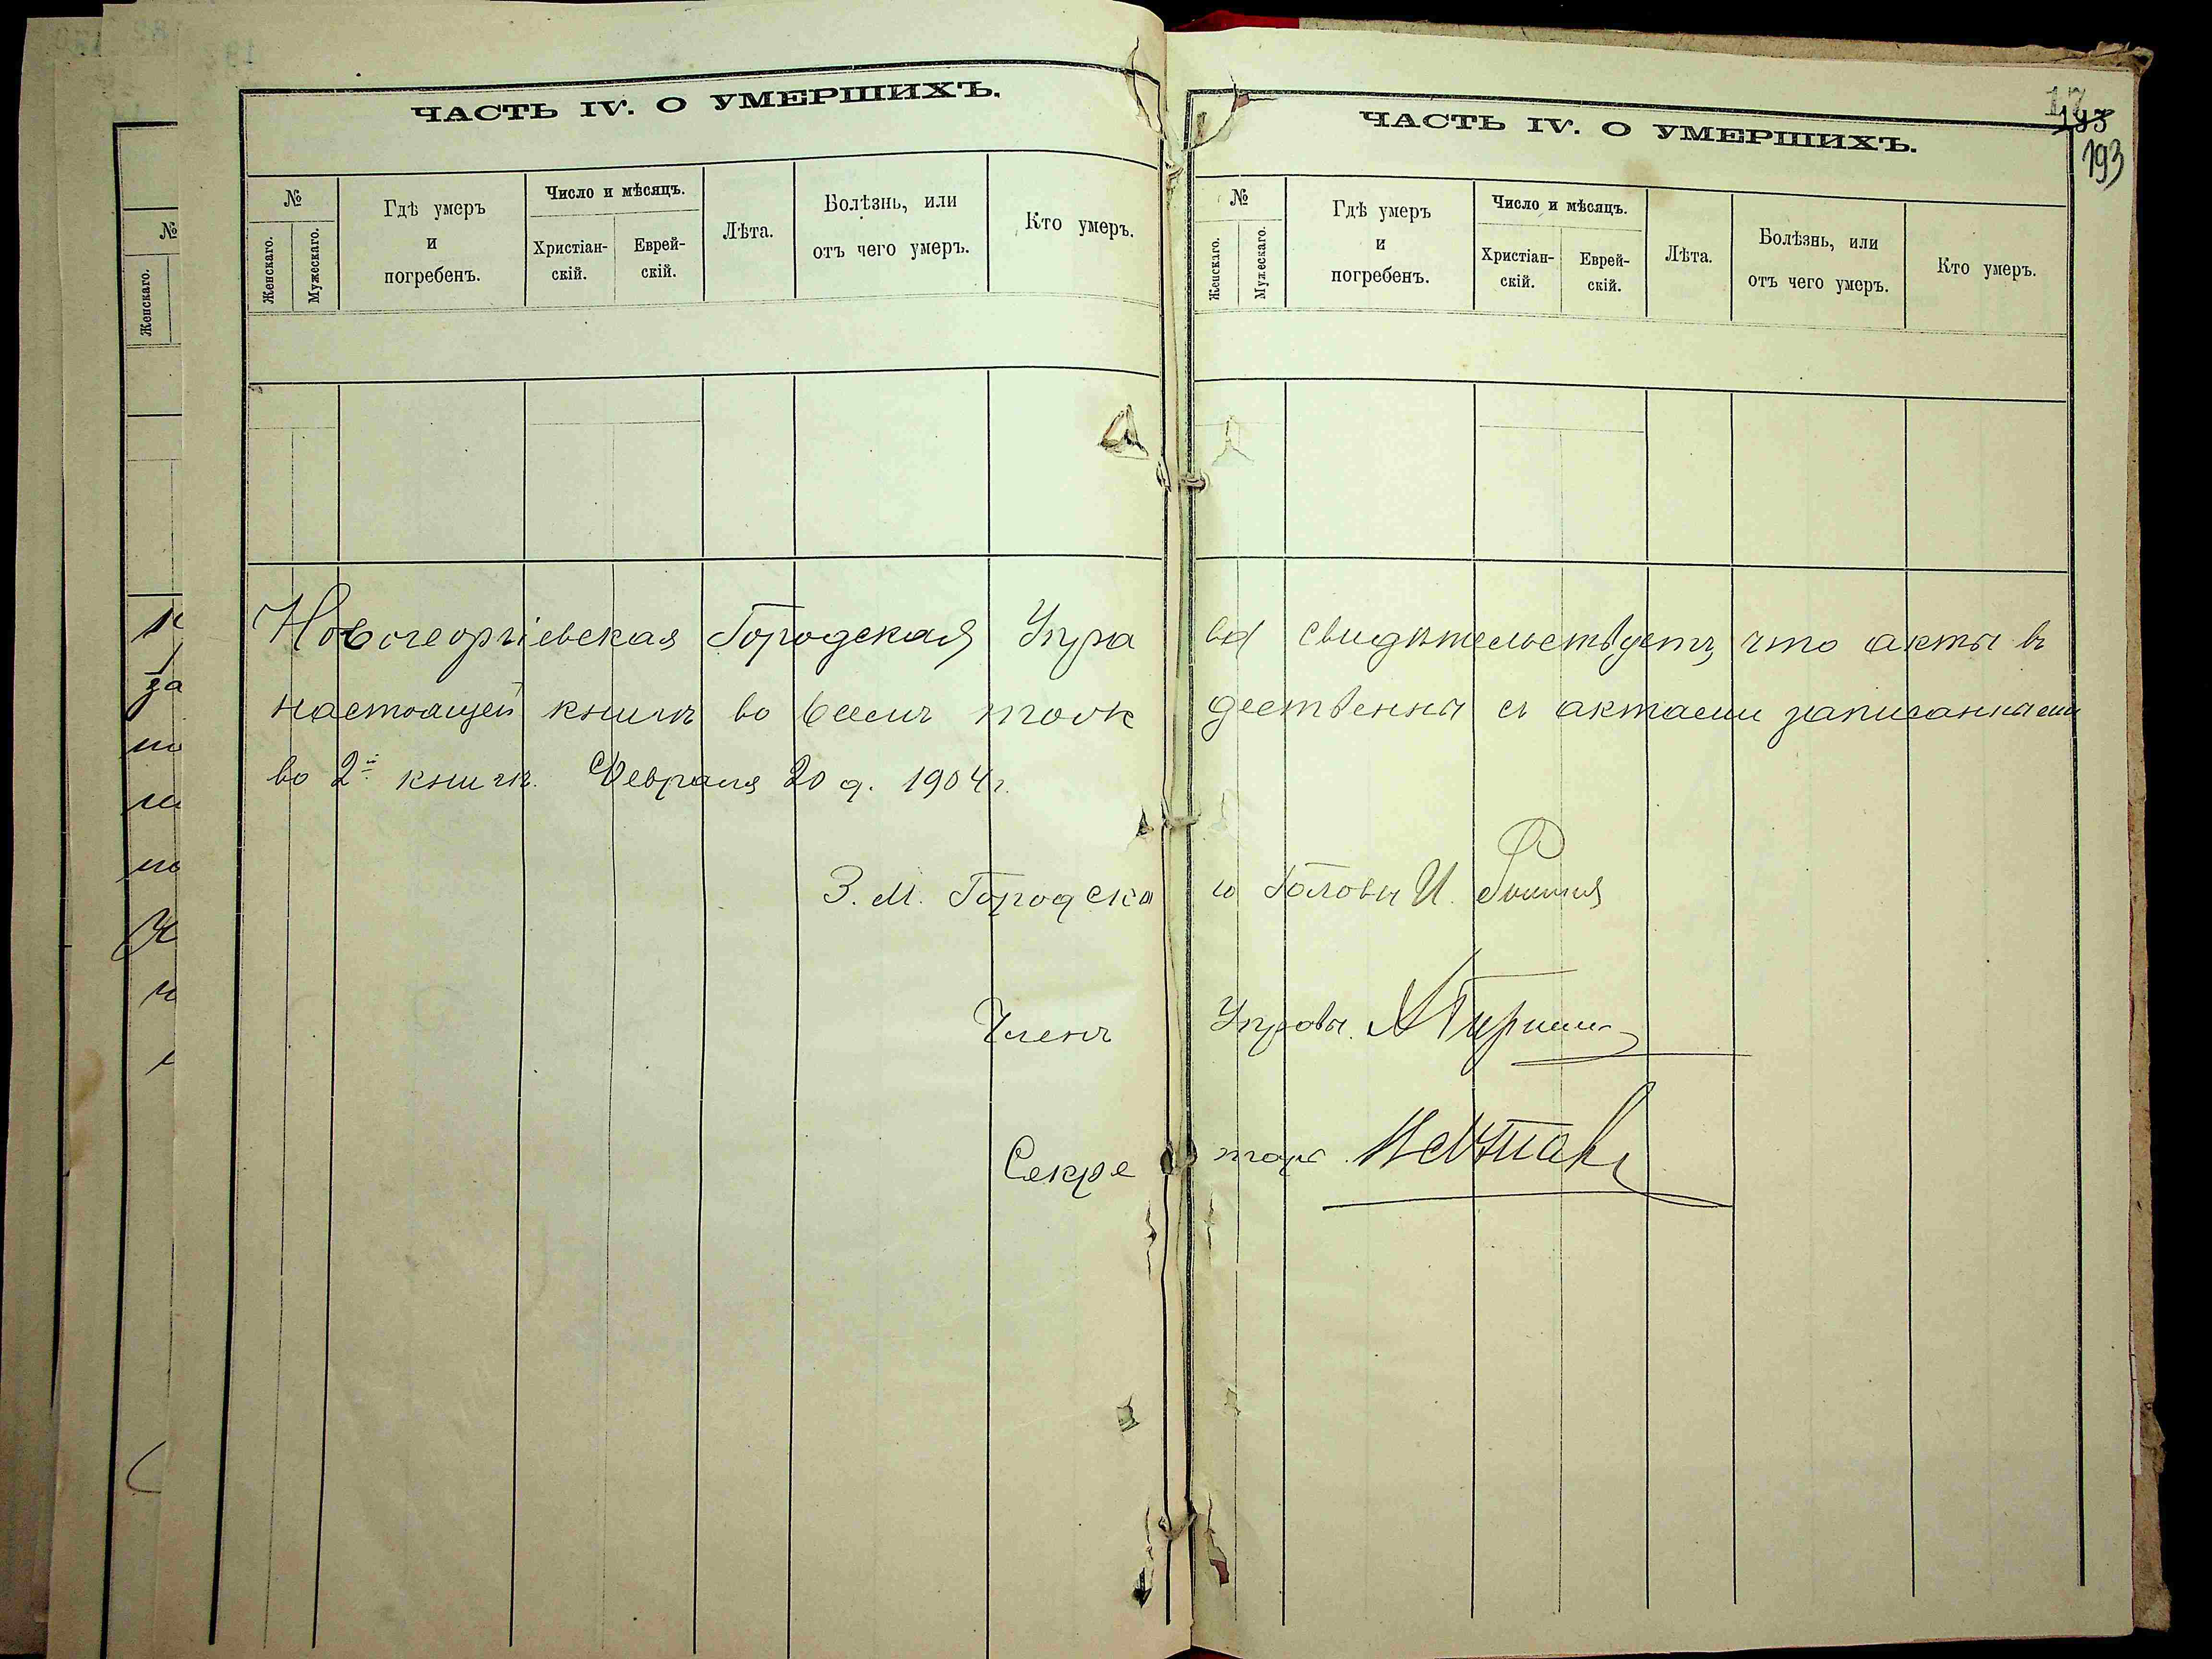 ЧАСТЬ IV. О УМЕРШИХЪ.
№
Женскаго.
Мужескаго.
Гдѣ умеръ
и
погребенъ.
Число и мѣсяцъ.
Христіан-
скій.
Еврей-
скій.
Лѣта.
Болѣзнь, или
отъ чего умеръ.
Кто умеръ.
ЧАСТЬ IV. О УМЕРШИХЪ.
193
193
№
Женскаго.
Мужескаго.
Гдѣ умеръ
и
погребенъ.
Число и мѣсяцъ.
Христіан-
скій.
Еврей-
скій.
Лѣта.
Болѣзнь, или
отъ чего умеръ.
Кто умеръ.
№
Женскаго.
Новогеоргіевская Городская Управа свидѣтельствуетъ, что акты въ
настоящей книгѣ во всемъ тождественны съ актами записанными
во 2й книгѣ. Февраля 20 д. 1904 г.
З. М. Городского Головы И.
Членъ Управы.
Секретарь.